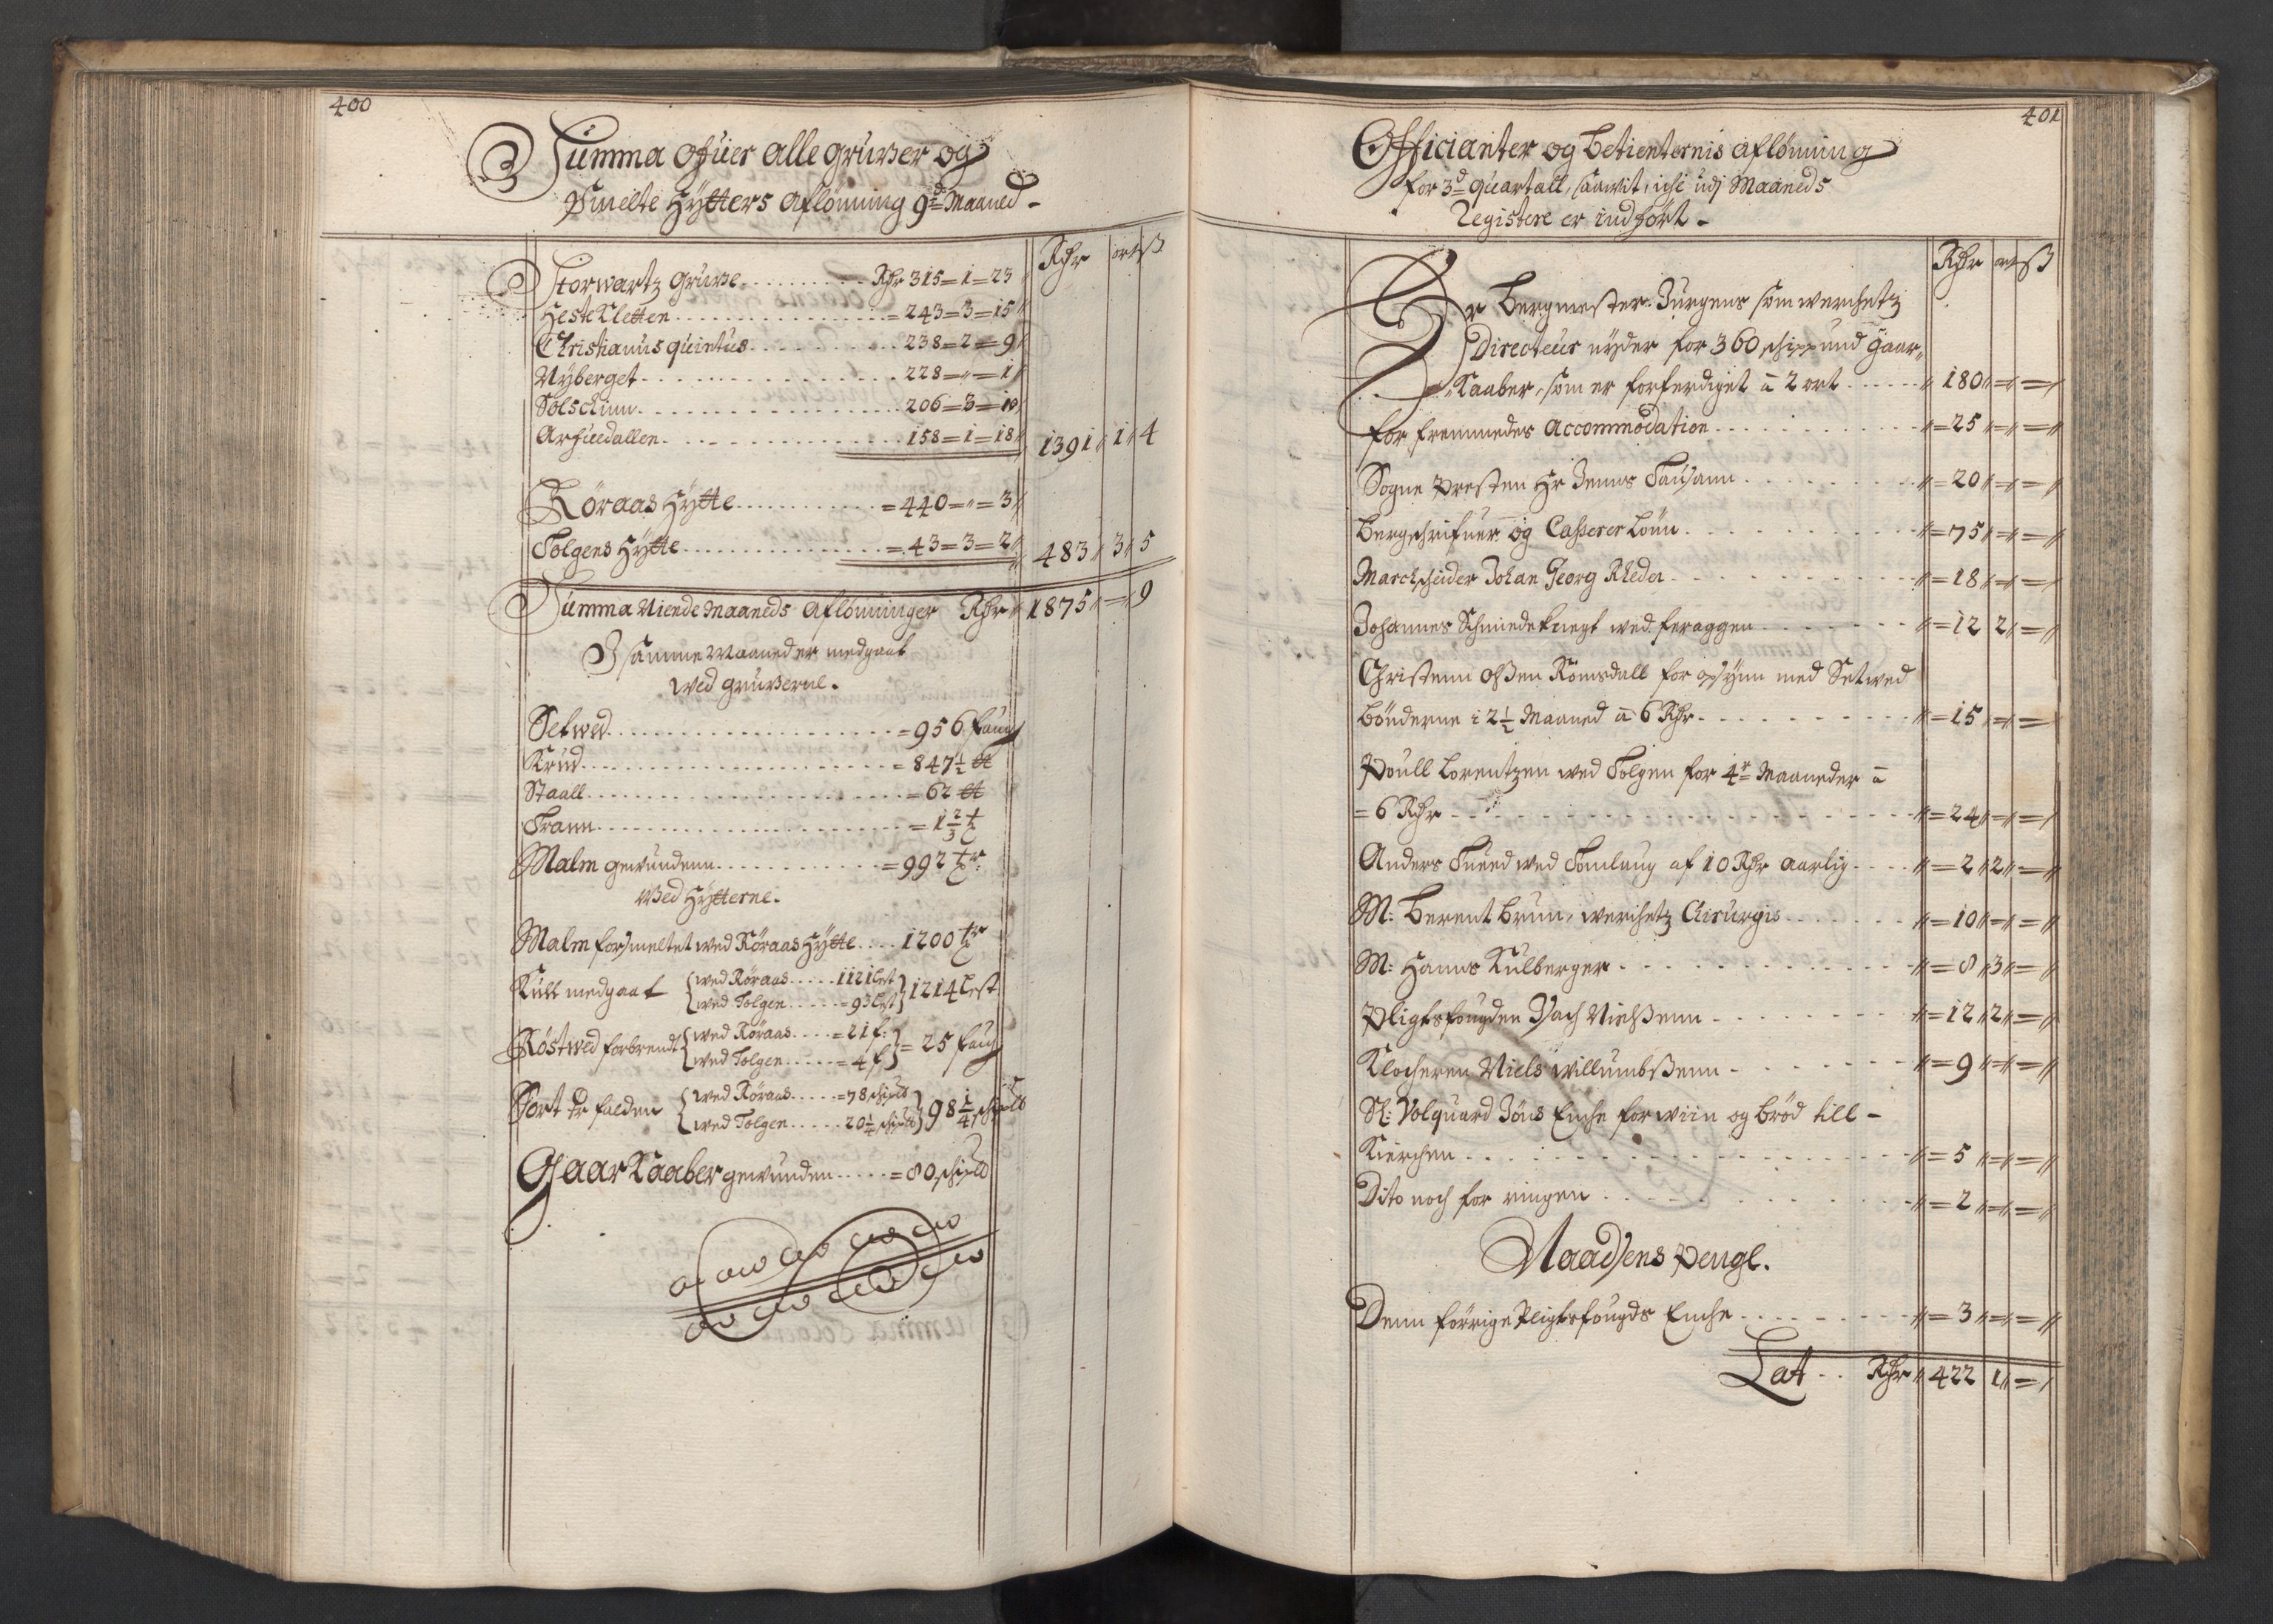 400
Summa Ofuer alle gruwer og
Smelte Hytters Aflønning 9de Maaned -
Rdr ort ß
Storwartz gruwe .......... Rdr 315 = 1 = 23
Hestekletten .......... = 243 = 3 = 15
Christianus quintus .......... 238 = 2 = 9
Nyberget .......... 228 = " = 1
Solschinn .......... 206 = 3 = 10
Arfuedallen .......... 158 = 1 = 18 " 1391 " 1 " 4
Röraas Hytte .......... = 440 = " = 3
Tolgens Hytte .......... = 43 = 3 = 2 " 483 " 3 " 5
Summa Niende Maaneds Aflønninger Rdr " 1875 " = " 9
I samme Maaneder medgaat
wed gruwerne.
Setwed .......... = 956 faun
Krud .......... = 847½ ℔
Staall .......... = 62 ℔
Trann .......... = 1⅔ t
Malm gewundenn .......... = 992 tr
Wed Hytterne.
Malm forsmeltet wed Röraas Hytte .... 1200 tr
Kull medgaat { wed Röraas ..... 1121 lest
wed Tolgen ...... = 93 lest } 1214 Lest
Röstwed forbrendt { wed Röraas .... = 21 f:
wed Tolgen ...... = 4 f } = 25 faun
Sort Er falden { wed Röraas ..... = 78 sch℔
wed Tolgen ..... 20¼ sch℔ } 98¼ sch℔
Gaar Kaaber gewunden ..... = 80 sch℔
401
Officianter og betienternis aflønning
for 3de quartall, saawit, iche udj Maaneds
Registere er indført -
Rdr ort ß
Hr Bergmester Jürgens som werchetz
Directeur nyder for 360 schippund gaar,,
Kaaber, som er forferdiget ā 2 ort ..... " 180 " = " = "
for fremmedes Accommodation .......... " = 25 " = " = "
Sogne Presten Hr Jenns Tausann .......... " = 20 " = " = "
Bergschrifuer og Casserer Lönn .......... " = 75 " = " = "
Marchscheider Johan Georg Rheder .......... " = 18 " = " = "
Johannes Schmiedeknegt wed feraggen .......... " = 12 2 " = "
Christenn Oßen Romsdall for opsynn med Setwed
bönderne i 2½ Maaned ā 6 Rdr .......... " = 15 " = " =
Poull Lorentzen wed Tolgen for 4r Maaneder ā
= 6 Rdr .......... " = 24 " = " = "
Anders Tueed wed Tomlaug af 10 Rdr Aarlig .... " = 2 " 2 " = "
M: Berent Brun, werchetz Chirurgis ...... " = 10 " = " = "
M: Hanns Kulberger .......... " = 8 " 3 " = "
Pligtsfougden Isach Nielßenn .......... " = 12 " 2 " = "
Klocheren Niels willumbßenn .......... " = 9 " = " = "
Sl: Volquard Jöns Enche for wiin og brød till -
Kierchen .......... " = 5 " = " = "
Dito noch for ringen .......... " = 2 " = " = "
Naadsens Penge.
Denn forrige Pligtsfougds Enche .......... " = 3 " = " = "
Lat .. Rdr " 422 1 " = "